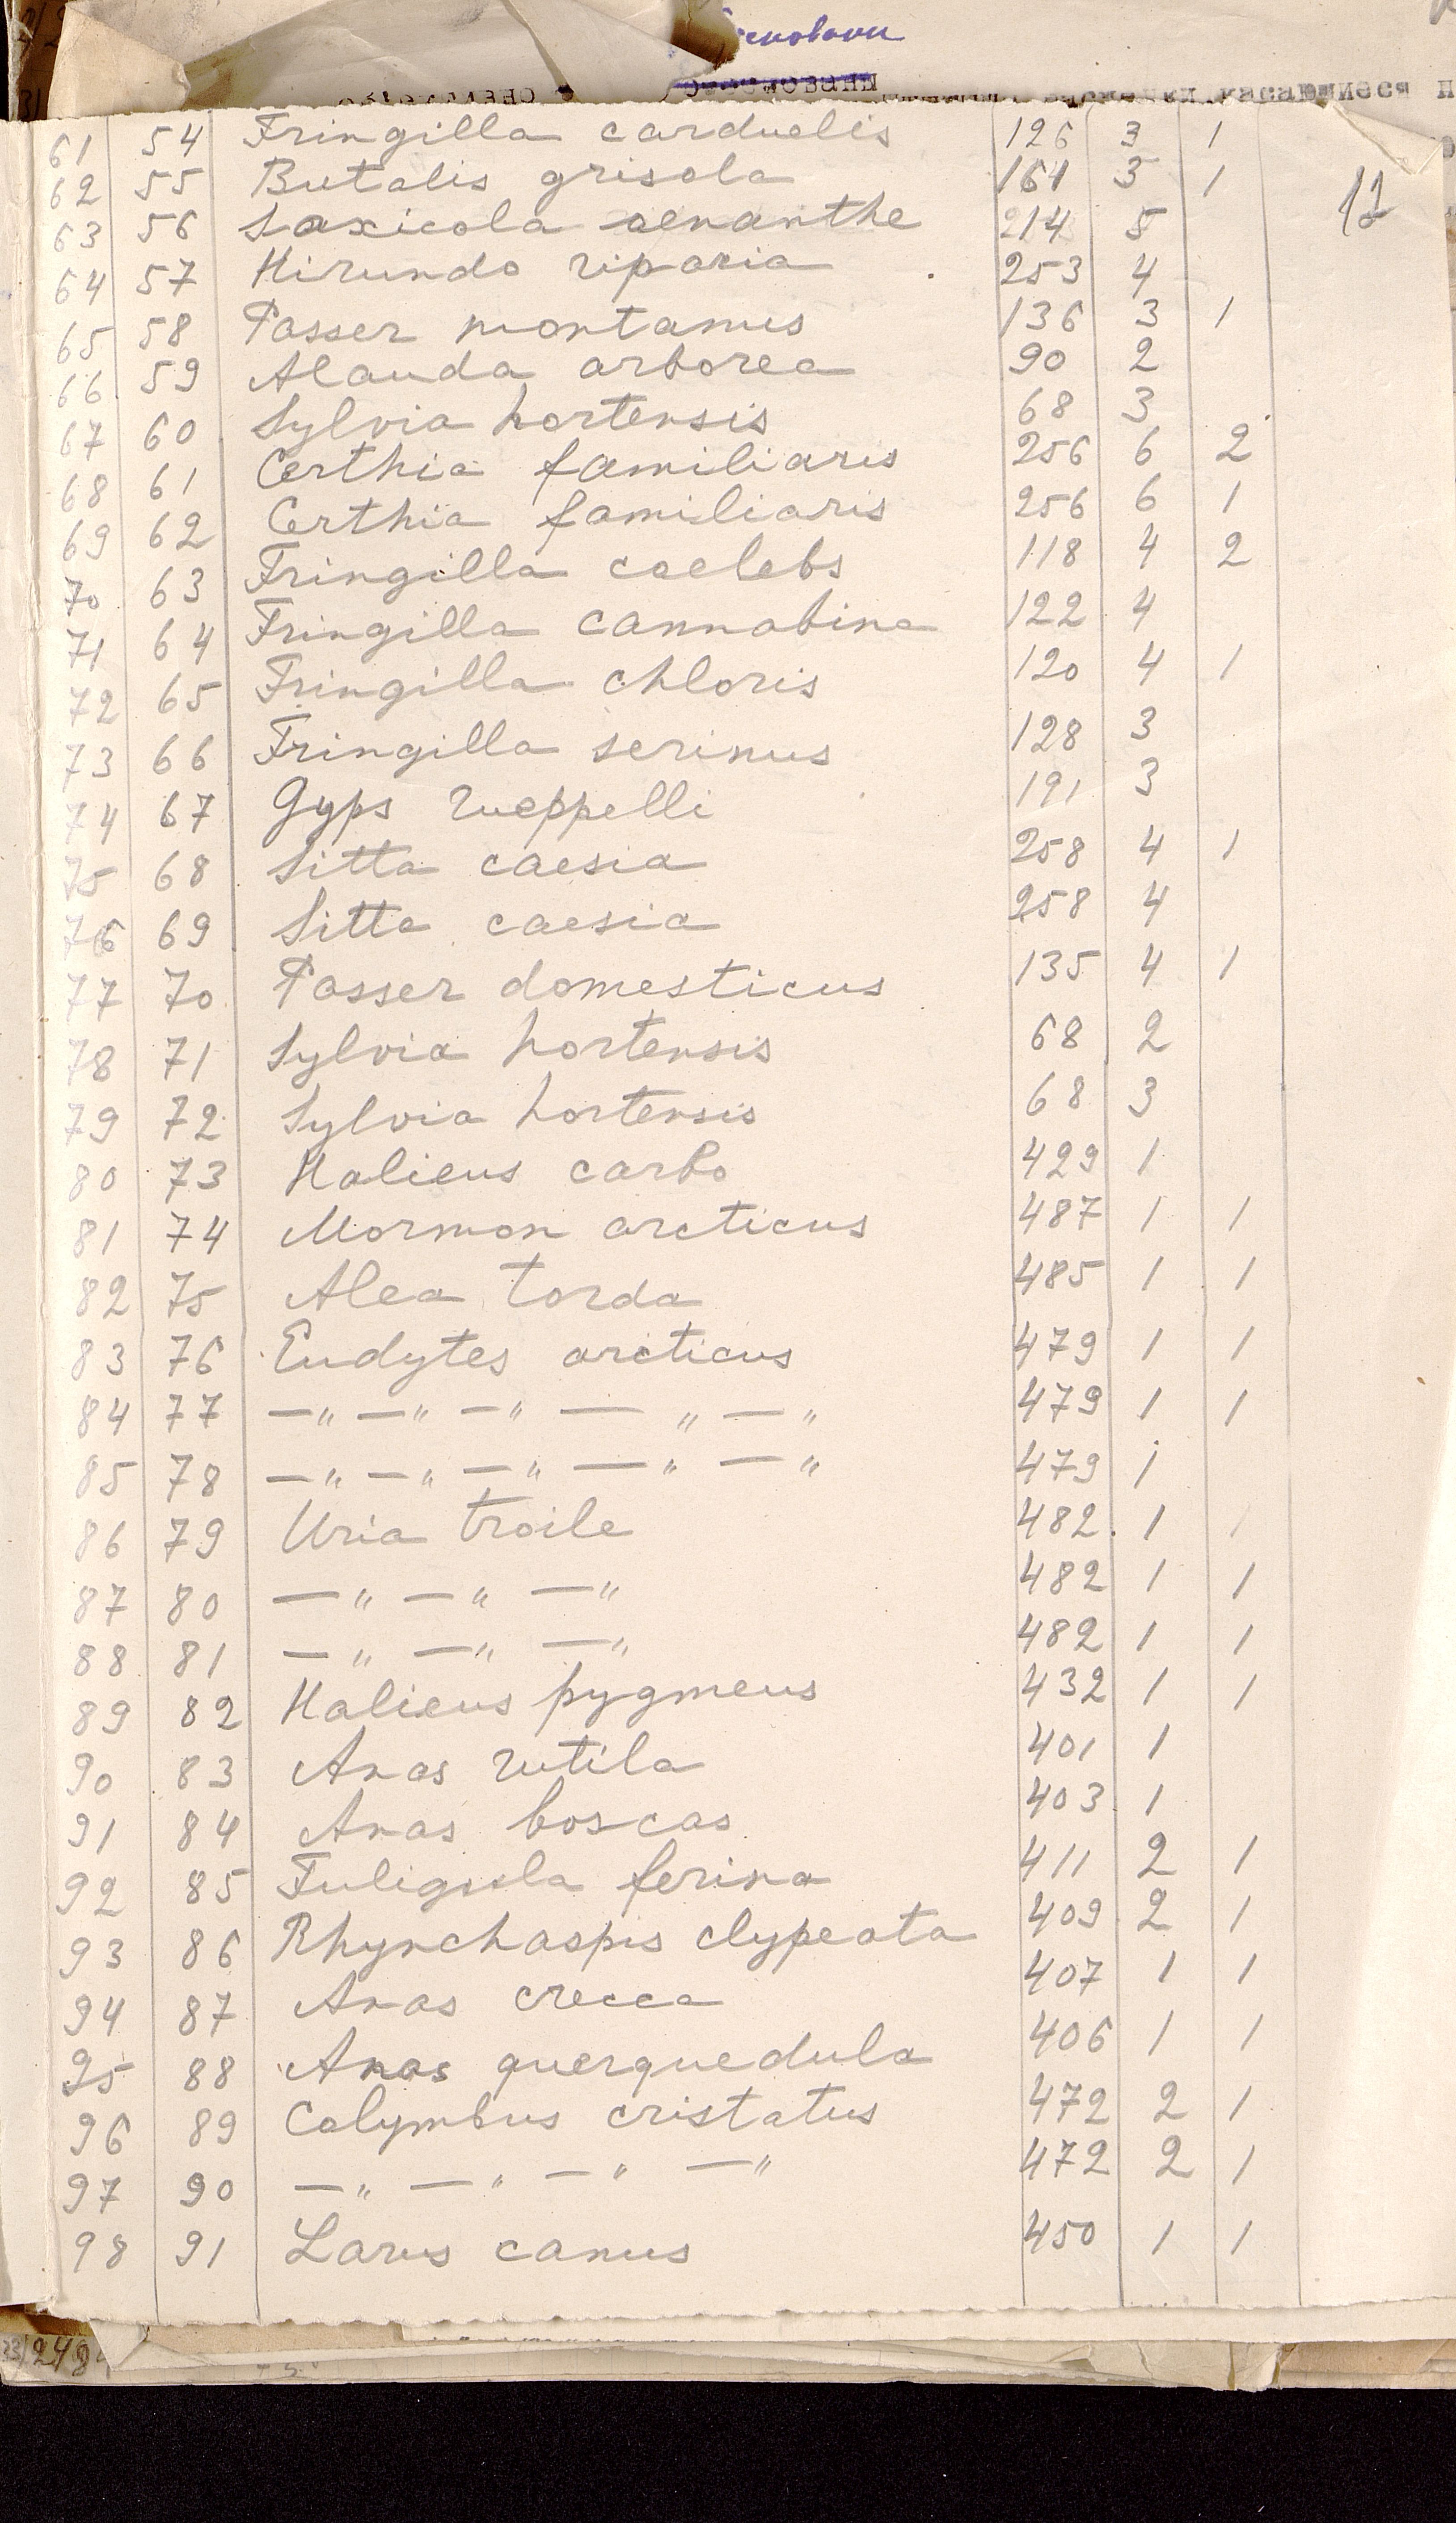 касающиеся
12
61 54 Fringilla carduelis 126 3 1
62 55 Butalis grisola 161 3 1
63 56 Saxicola oenanthe 214 5
64 57 Hirundo riparia 253 4
65 58 Passer montanus 136 3 1
66 59 Alauda arborea 90 2
67 60 Sylvia hortensis 68 3
68 61 Certhia familiaris 256 6 2
69 62 Certhia familiaris 256 6 1
70 63 Fringilla coelebs 118 4 2
71 64 Fringilla cannabina 122 4
72 65 Fringilla chloris 120 4 1
73 66 Fringilla serinus 128 3
74 67 Gyps rueppelli 191 3
75 68 Sitta caesia 258 4 1
76 69 Sitta caesia 258 4
77 70 Passer domesticus 135 4 1
78 71 Sylvia hortensis 68 2
79 72 Sylvia hortensis 68 3
80 73 Halieus carbo 429 1
81 74 Mormon arcticus 487 1 1
82 75 Alca torda 485 1 1
83 76 Eudytes arcticus 479 1 1
84 77 —„ —„ —„ — „ —„ 479 1 1
85 78 —„ —„ —„ —„ —„ 479 1
86 79 Uria troile 482 1 1
87 80 —„ —„ —„ 482 1 1
88 81 —„ —„ —„ 482 1 1
89 82 Halieus pygmeus 432 1 1
90 83 Anas rutila 401 1
91 84 Anas boscas 403 1
92 85 Fuligula ferina 411 2 1
93 86 Rhynchaspis clypeata 409 2 1
94 87 Anas crecca 407 1 1
95 88 Anas querquedula 406 1 1
96 89 Colymbus cristatus 472 2 1
97 90 —„ —„ —„ —„ 472 2 1
98 91 Larus canus 450 1 1